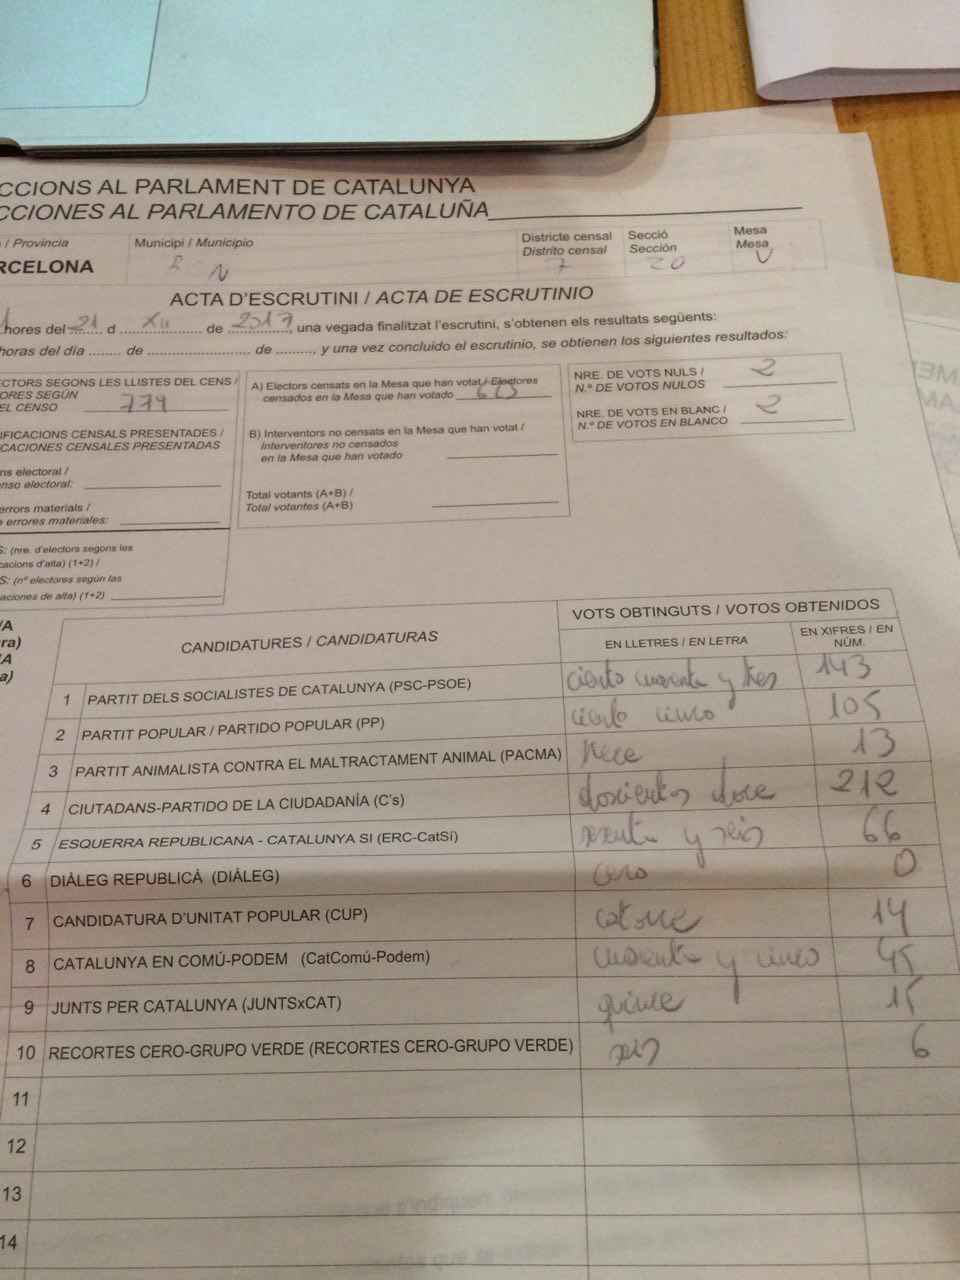 CCIONS AL PARLAMENT DE CATALUNYA
CCIONES AL PARLAMENTO DE CATALUÑA
/ Provincia
RCELONA
Municipi / Municipio
Districte censal
Distrito censal
7
Secció
Sección
20
Mesa
Mesa
U
ACTA D'ESCRUTINI / ACTA DE ESCRUTINIO
hores del 21 d XII de 2017, una vegada finalitzat l'escrutini, s'obtenen els resultats següents:
horas del día ........ de ........................ de ........, y una vez concluido el escrutinio, se obtienen los siguientes resultados:
ECTORS SEGONS LES LLISTES DEL CENS /
ORES SEGÚN
EL CENSO 779
IFICACIONS CENSALS PRESENTADES /
CACIONES CENSALES PRESENTADAS
ns electoral /
nso electoral:
errors materials /
e errores materiales:
S: (nre. d'electors segons les
cacions d'alta) (1+2) /
S: (nº electores según las
aciones de alta) (1+2)
A) Electors censats en la Mesa que han votat / Electores
censados en la Mesa que han votado
B) Interventors no censats en la Mesa que han votat /
Interventores no censados
en la Mesa que han votado
Total votants (A+B) /
Total votantes (A+B)
NRE. DE VOTS NULS /
N.º DE VOTOS NULOS 2
NRE. DE VOTS EN BLANC /
N.º DE VOTOS EN BLANCO 2
/A
ra)
/A
a)
CANDIDATURES / CANDIDATURAS
VOTS OBTINGUTS / VOTOS OBTENIDOS
EN LLETRES / EN LETRA
EN XIFRES / EN
NÚM.
1 PARTIT DELS SOCIALISTES DE CATALUNYA (PSC-PSOE) ciento cuarenta y tres 143
2 PARTIT POPULAR / PARTIDO POPULAR (PP) ciento cinco 105
3 PARTIT ANIMALISTA CONTRA EL MALTRACTAMENT ANIMAL (PACMA) trece 13
4 CIUTADANS-PARTIDO DE LA CIUDADANÍA (C's) doscientos doce 212
5 ESQUERRA REPUBLICANA - CATALUNYA SI (ERC-CatSí) sesenta y seis 66
6 DIÀLEG REPUBLICÀ (DIÀLEG) cero 0
7 CANDIDATURA D'UNITAT POPULAR (CUP) catorce 14
8 CATALUNYA EN COMÚ-PODEM (CatComú-Podem) cuarenta y cinco 45
9 JUNTS PER CATALUNYA (JUNTSxCAT) quince 15
10 RECORTES CERO-GRUPO VERDE (RECORTES CERO-GRUPO VERDE) seis 6
11
12
13
14